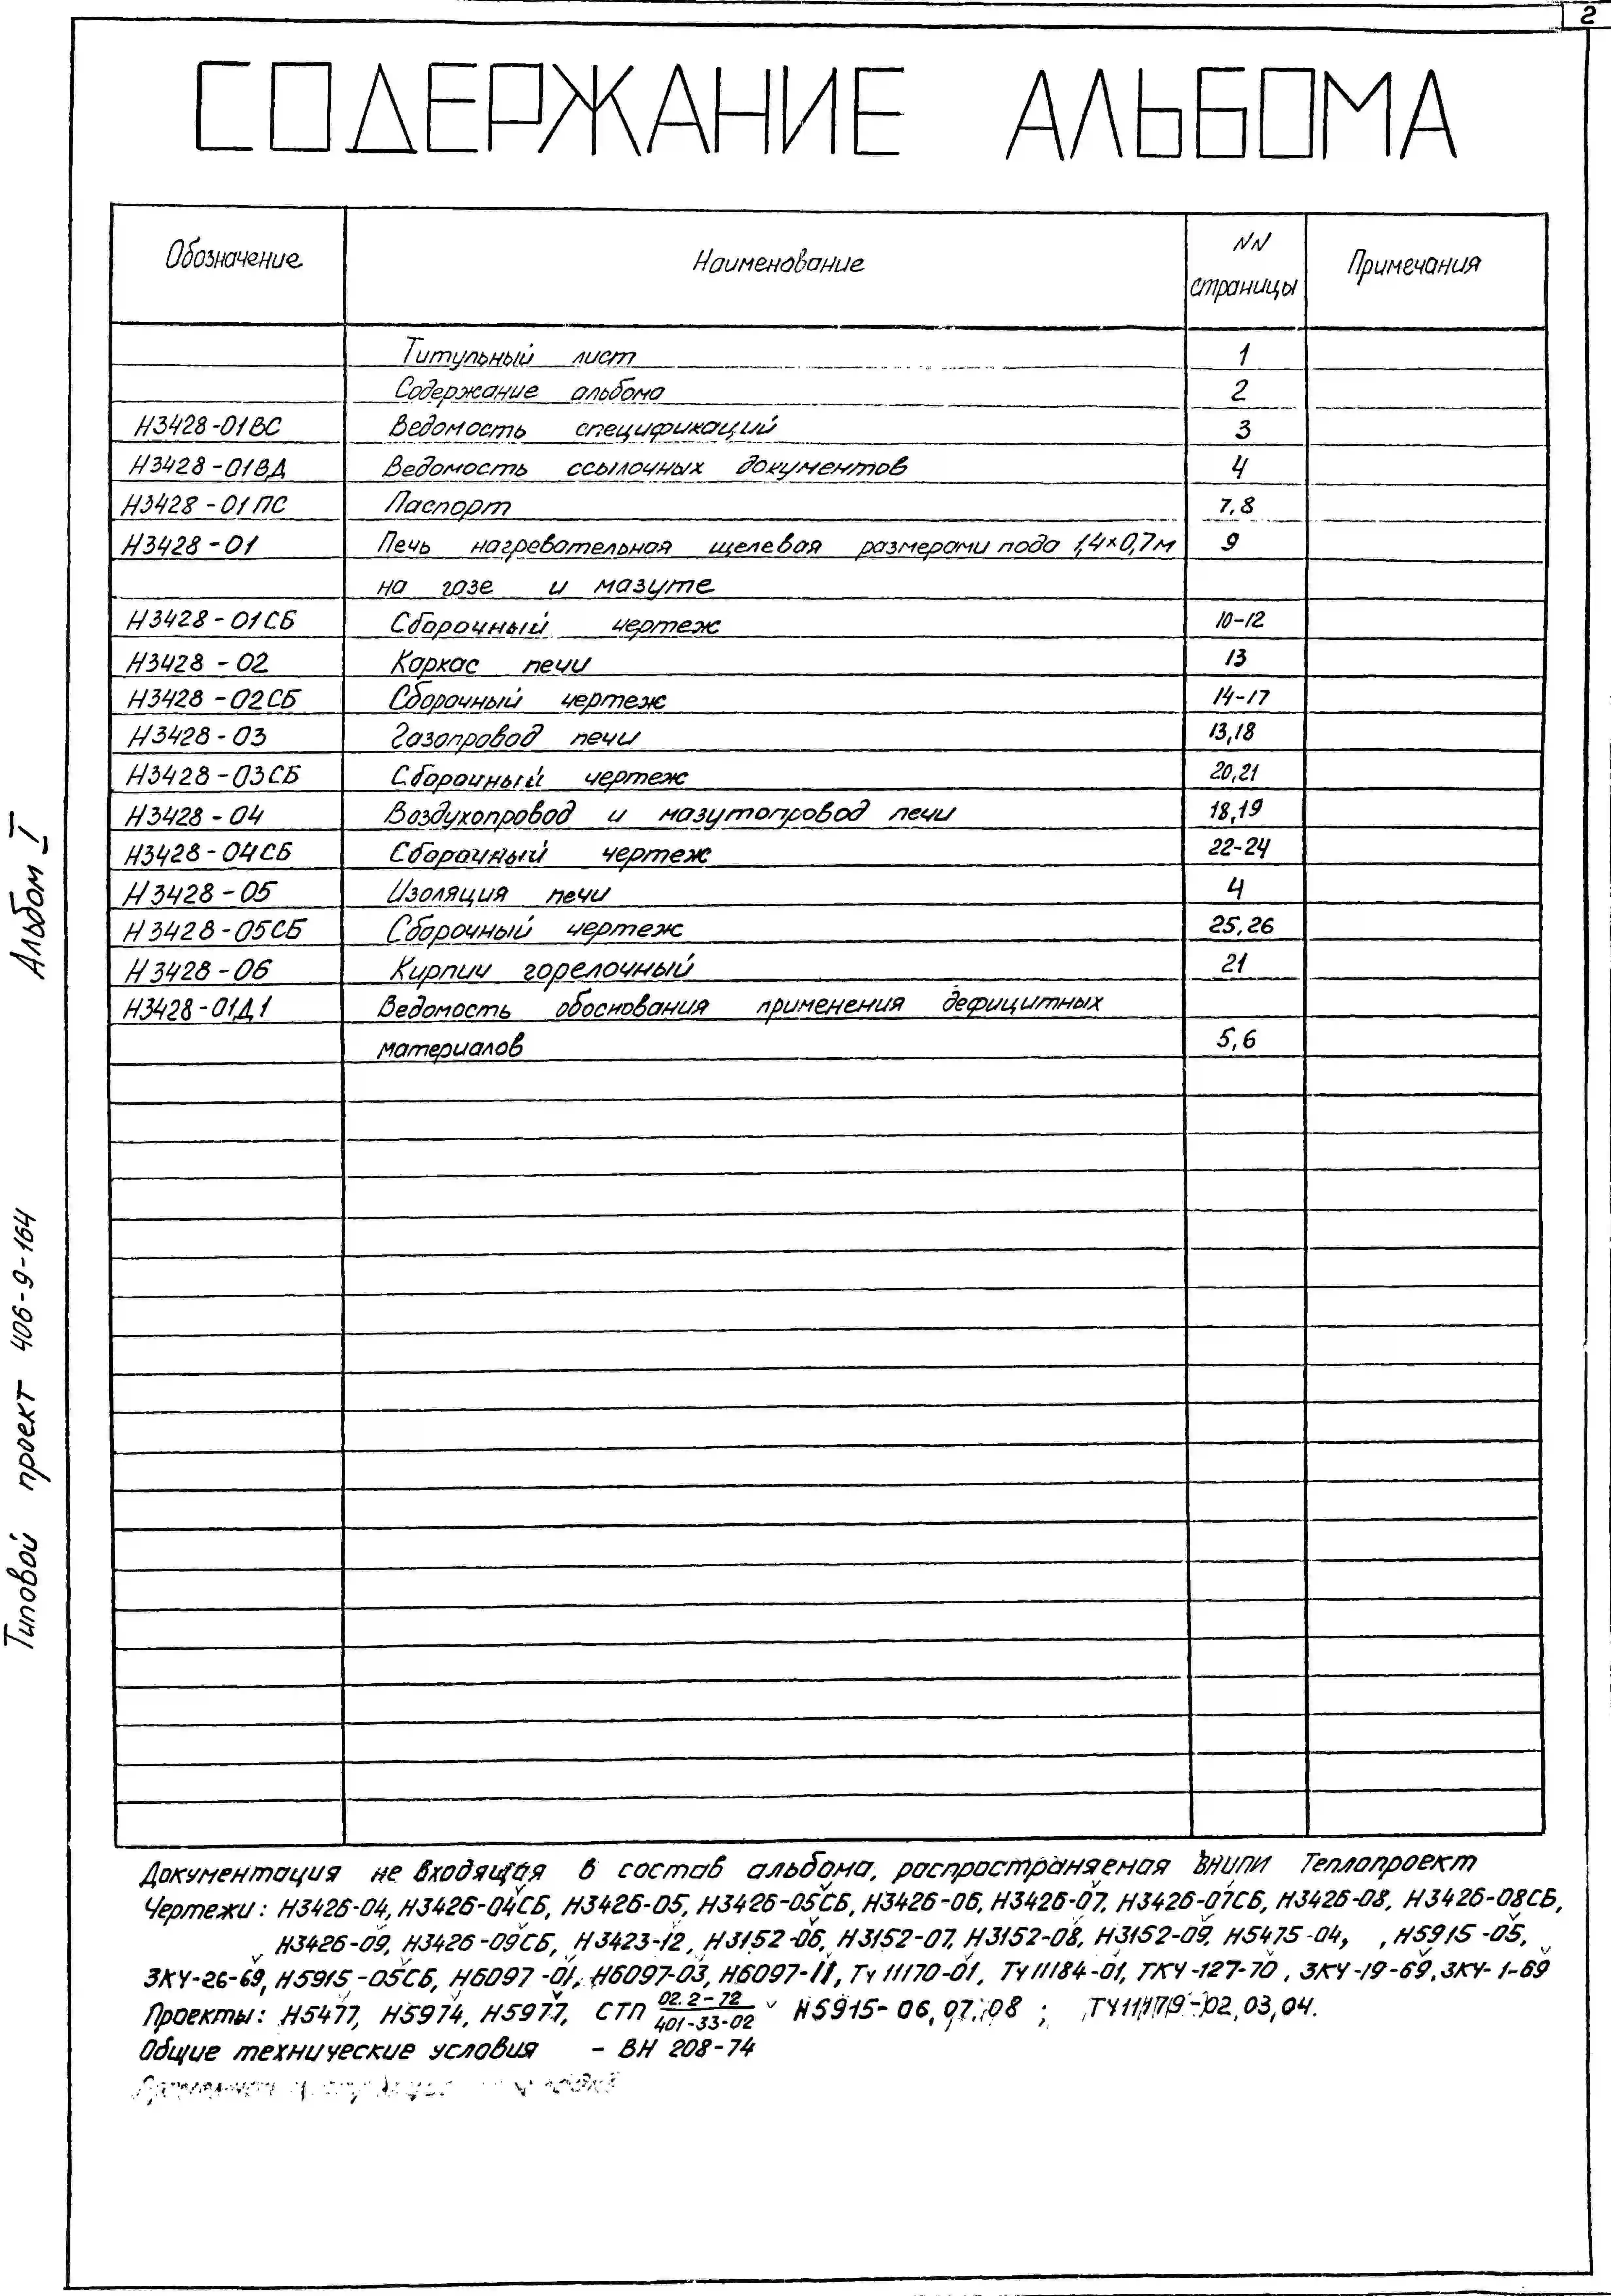 2
СОДЕРЖАНИЕ АЛЬБОМА
Обозначение Наименование NN страницы Примечания
Титульный лист 1
Содержание альбома 2
Н3428-01ВС Ведомость спецификаций 3
Н3428-01ВД Ведомость ссылочных документов 4
Н3428-01ПС Паспорт 7,8
Н3428-01 Печь нагревательная щелевая размерами пода 1,4×0,7м 9
на газе и мазуте
Н3428-01СБ Сборочный чертеж 10-12
Н3428-02 Каркас печи 13
Н3428-02СБ Сборочный чертеж 14-17
Н3428-03 Газопровод печи 13,18
Н3428-03СБ Сборочный чертеж 20,21
Н3428-04 Воздухопровод и мазутопровод печи 18,19
Н3428-04СБ Сборочный чертеж 22-24
Н3428-05 Изоляция печи 4
Н3428-05СБ Сборочный чертеж 25,26
Н3428-06 Кирпич горелочный 21
Н3428-01Д1 Ведомость обоснования применения дефицитных
материалов 5,6
Документация не входящая в состав альбома, распространяемая ВНИПИ Теплопроект
Чертежи: Н3426-04, Н3426-04СБ, Н3426-05, Н3426-05СБ, Н3426-06, Н3426-07, Н3426-07СБ, Н3426-08, Н3426-08СБ,
Н3426-09, Н3426-09СБ, Н3423-12, Н3152-06, Н3152-07, Н3152-08, Н3152-09, Н5475-04, , Н5915-05,
ЗКЧ-26-69, Н5915-05СБ, Н6097-01, Н6097-03, Н6097-11, ТЧ 11170-01, ТЧ 11184-01, ТКЧ-127-70, ЗКЧ-19-69, ЗКЧ-1-69
Проекты: Н5477, Н5974, Н5977, СТП 02.2-72/401-33-02 Н5915-06,07,08; ТЧ11179-02,03,04.
Общие технические условия - ВН 208-74
Альбом I
Типовой проект 406-9-164